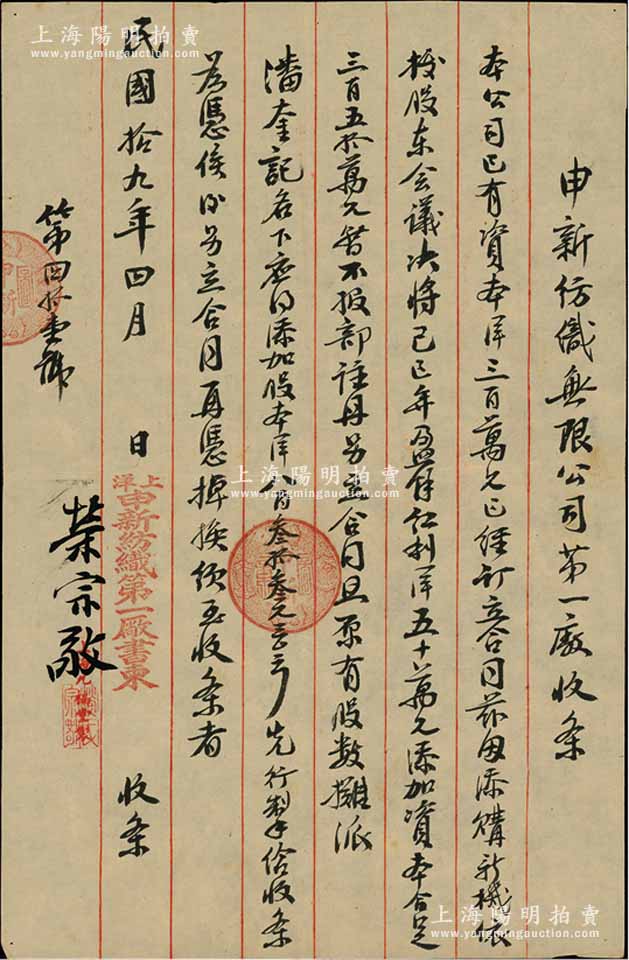 申新紡織無限公司第一廠收条
本公司已有資本洋三百萬元正經訂立合同茲因添購新機依
據股東会議决將己巳年盈餘紅利洋五十萬元添加資本合足
三百五拾萬元暫不报部註册另立合同且原有股数攤派
潘奎記名下應得添加股本洋八百叁拾叁元三角先行掣给收条
為憑俟後另立合同再憑掉换须至收条者
民國拾九年四月 日 收条
上洋
申新紡織第一廠書柬
榮宗敬
第四拾壹號
上海陽明拍賣
www.yangmingauction.com
上海陽明拍賣
www.yangmingauction.com
上海陽明拍賣
www.yangmingauction.com